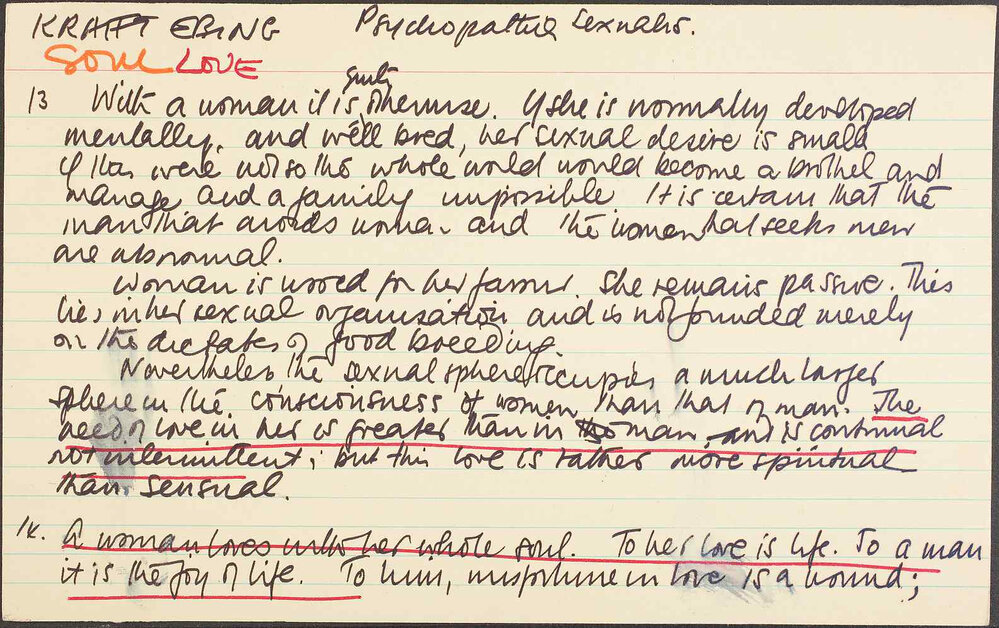 KRAFT EBING Psychopathia Sexualis.
SOUL LOVE
quite
13 With a woman it is otherwise. If she is normally developed
mentally, and well bred, her sexual desire is small
If this were not so the whole world would become a brothel and
marriage and a family impossible It is certain that the
man that avoids woman and the women that seeks men
are abnormal.
Woman is wooed for her favour. She remains passive. This
lies in her sexual organisation and is not founded merely
on the dictates of good breeding.
Nevertheless the sexual sphere occupies a much larger
sphere in the consciousness of women than that of man. The
need of love in her is greater than in man, and is continual
not intermittent; but this love is rather more spiritual
than sensual.
14. A woman loves with her whole soul. To her love is life. To a man
it is the joy of life. To him, misfortune in love is a wound;